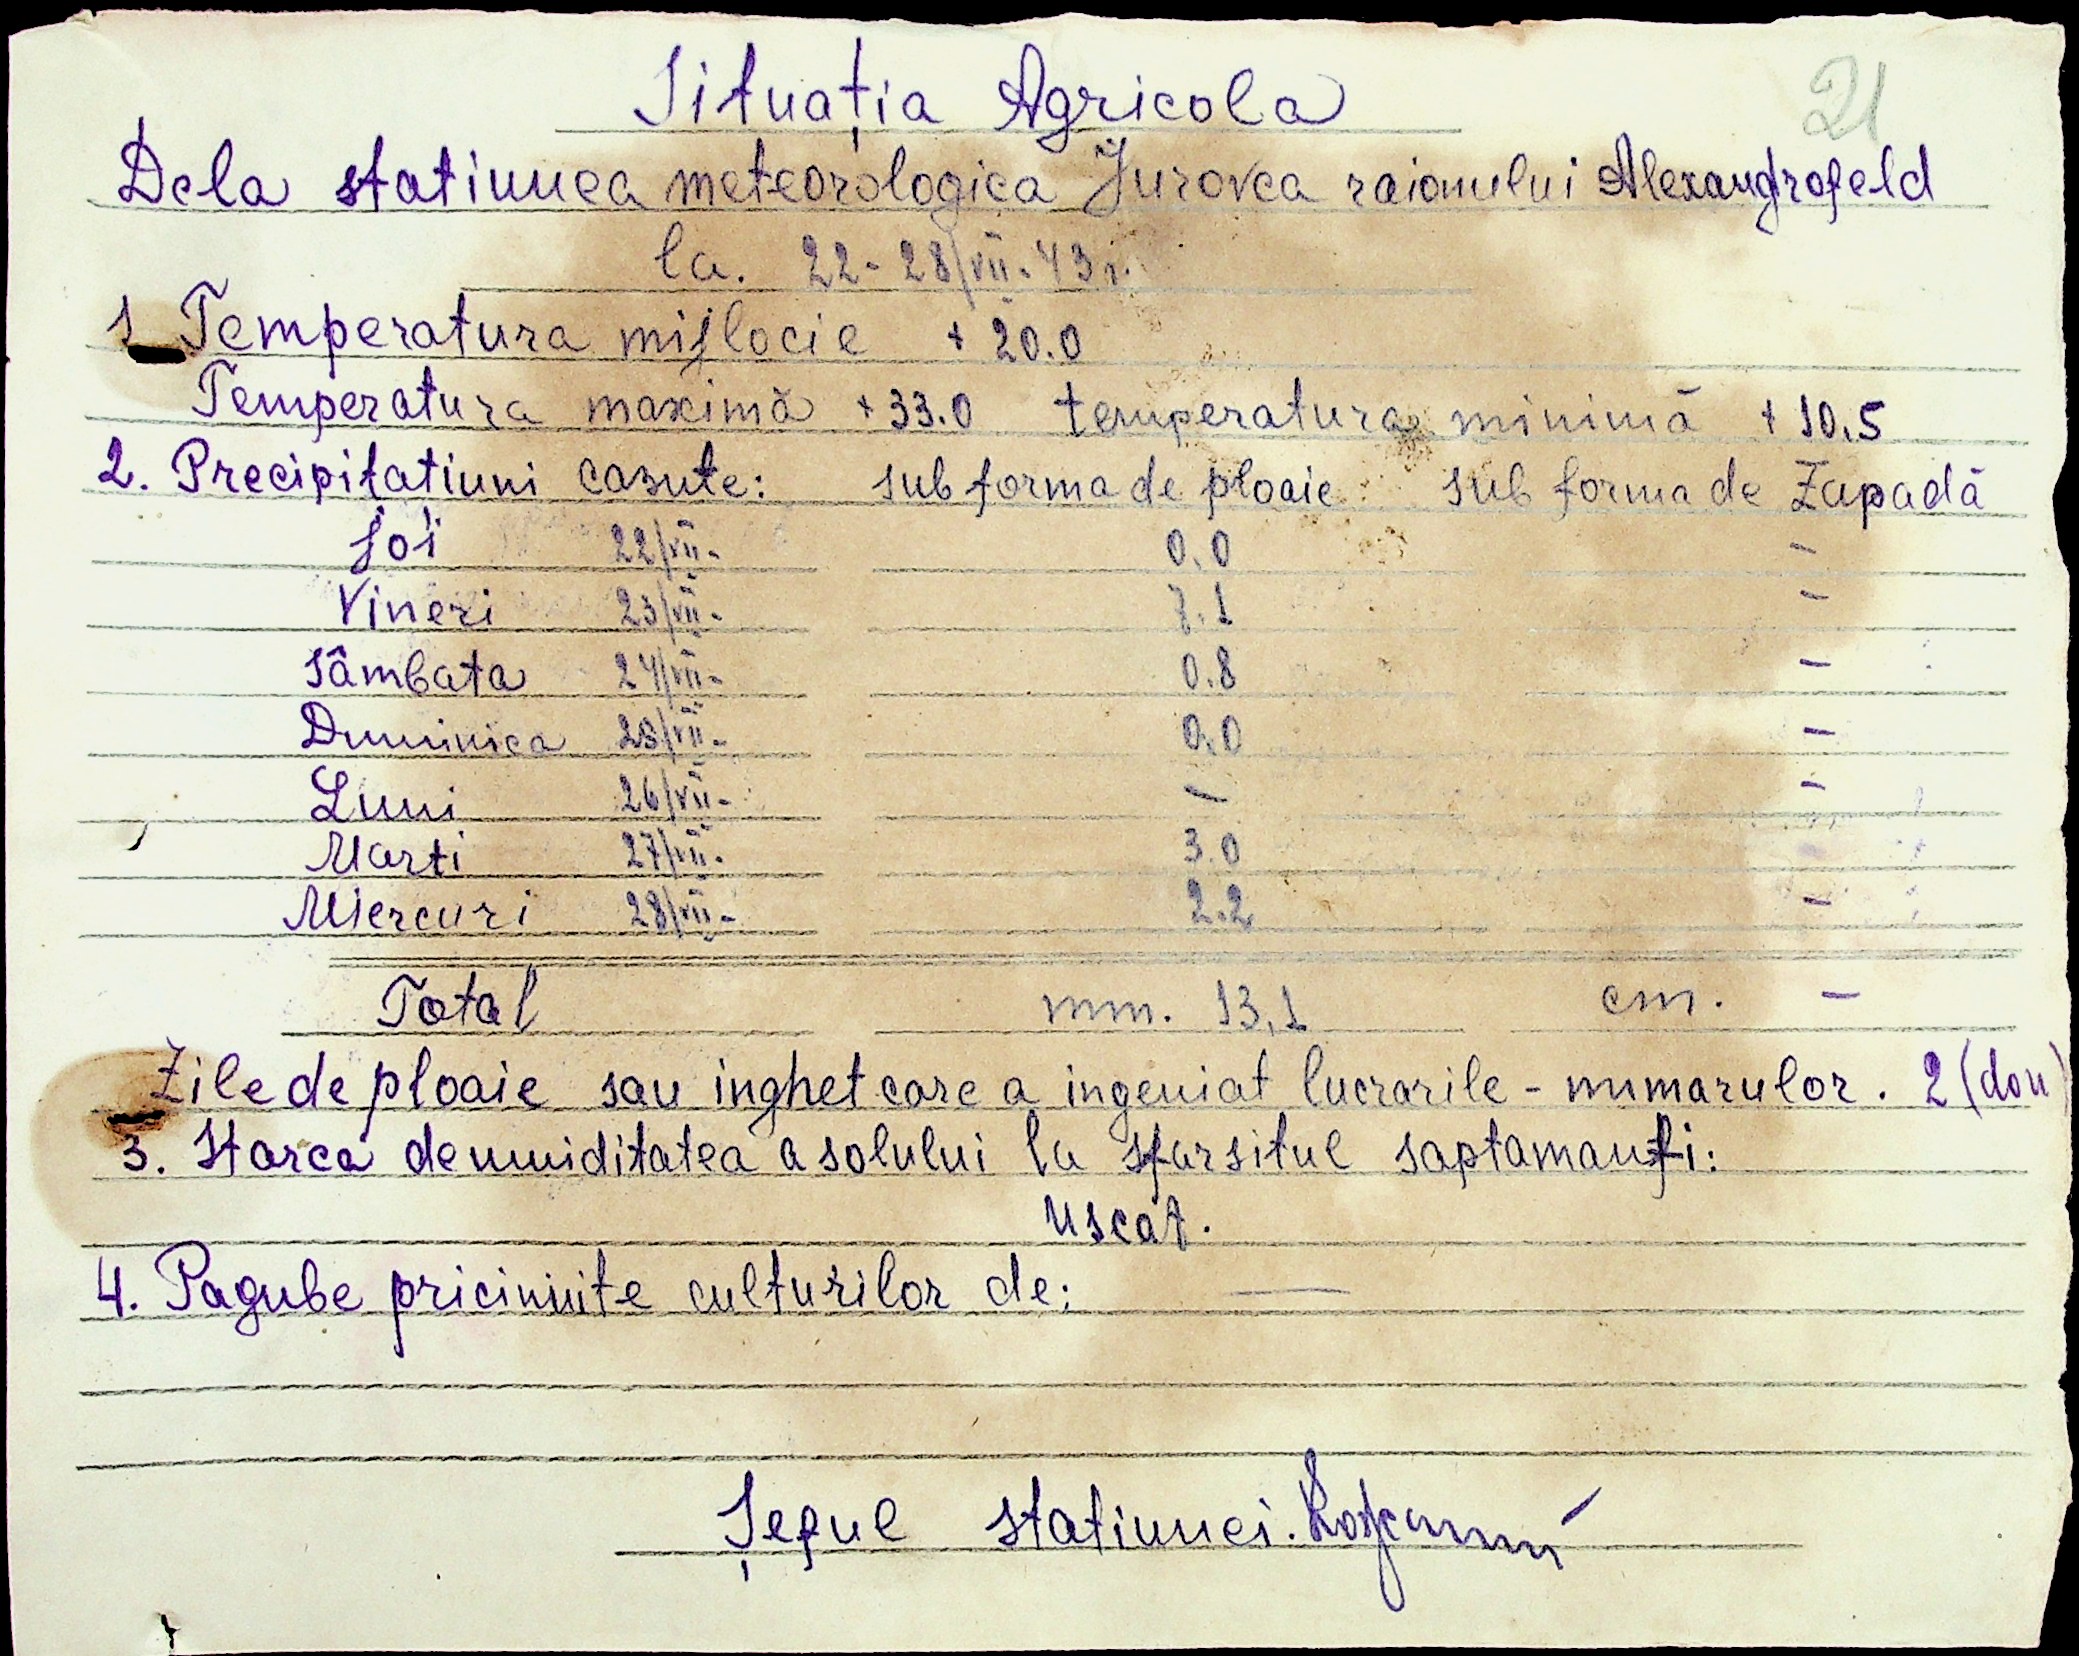 21
Situația Agricola
Dela statiunea meteorologica Jurovca raionului Alexandrofeld
la. 22-28/VII-43 r.
1 Temperatura mijlocie + 20.0
Temperatura maximă + 33.0 temperatura minimă + 10,5
2. Precipitatiuni casute: sub forma de ploaie sub forma de Zapadă
Joi 22/VII- 0.0 -
Vineri 23/VII- 7.1 -
Sâmbata 24/VII- 0.8 -
Duminica 25/VII- 0.0 -
Luni 26/VII- - -
Marti 27/VII- 3.0 -
Miercuri 28/VII- 2.2 -
Total mm. 13,1 cm. -
Zile de ploaie sau inghet care a ingeniat lucrarile - numarulor. 2 (dou)
3. Starea de umiditatea a solului la sfarsitul saptamanii:
Uscat.
4. Pagube pricinuite culturilor de: —
Șeful statiunei.